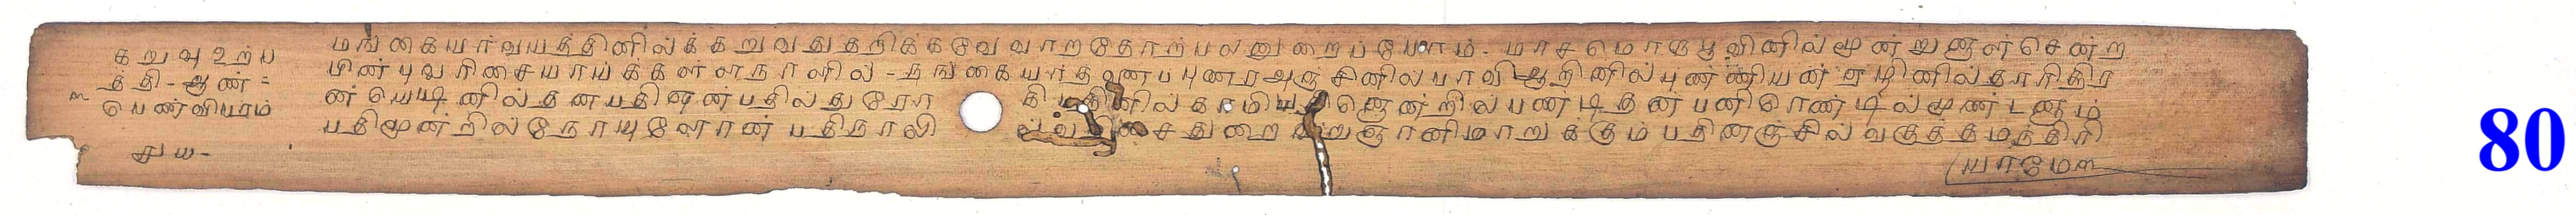 கறுவு உற்ப
த்தி - ஆண் =
பெண் விபரம்
சுய -
மங்கையர்வயத்தினில்க் கறுவது தறிக்கவே வாறதோற்பலனுறைப்யோம் - மாசமொருபூவினில் மூன்றுனாள் சென்ற
பின்புவரிசையாய்க்கள்ளநாளில் - நங்கையர்தனைப்புணரஅஞ்சினில்பாவிஆறினில்புண்ணியன்ஏழினில்தாரித்திர
ன்யெட்டினில்தனபதிஒன்பதில்துரோ கி பத்தினில்காமிய னொன்றில்பண்டிதன்பனிரெண்டில்மூண்டனும்
பதிமூன்றில்நோயுளோன் பதிநாலி துறை ஞானிமாறுக்கும் பதினஞ்சில் வருத்தமந்திரி
யாமே
80